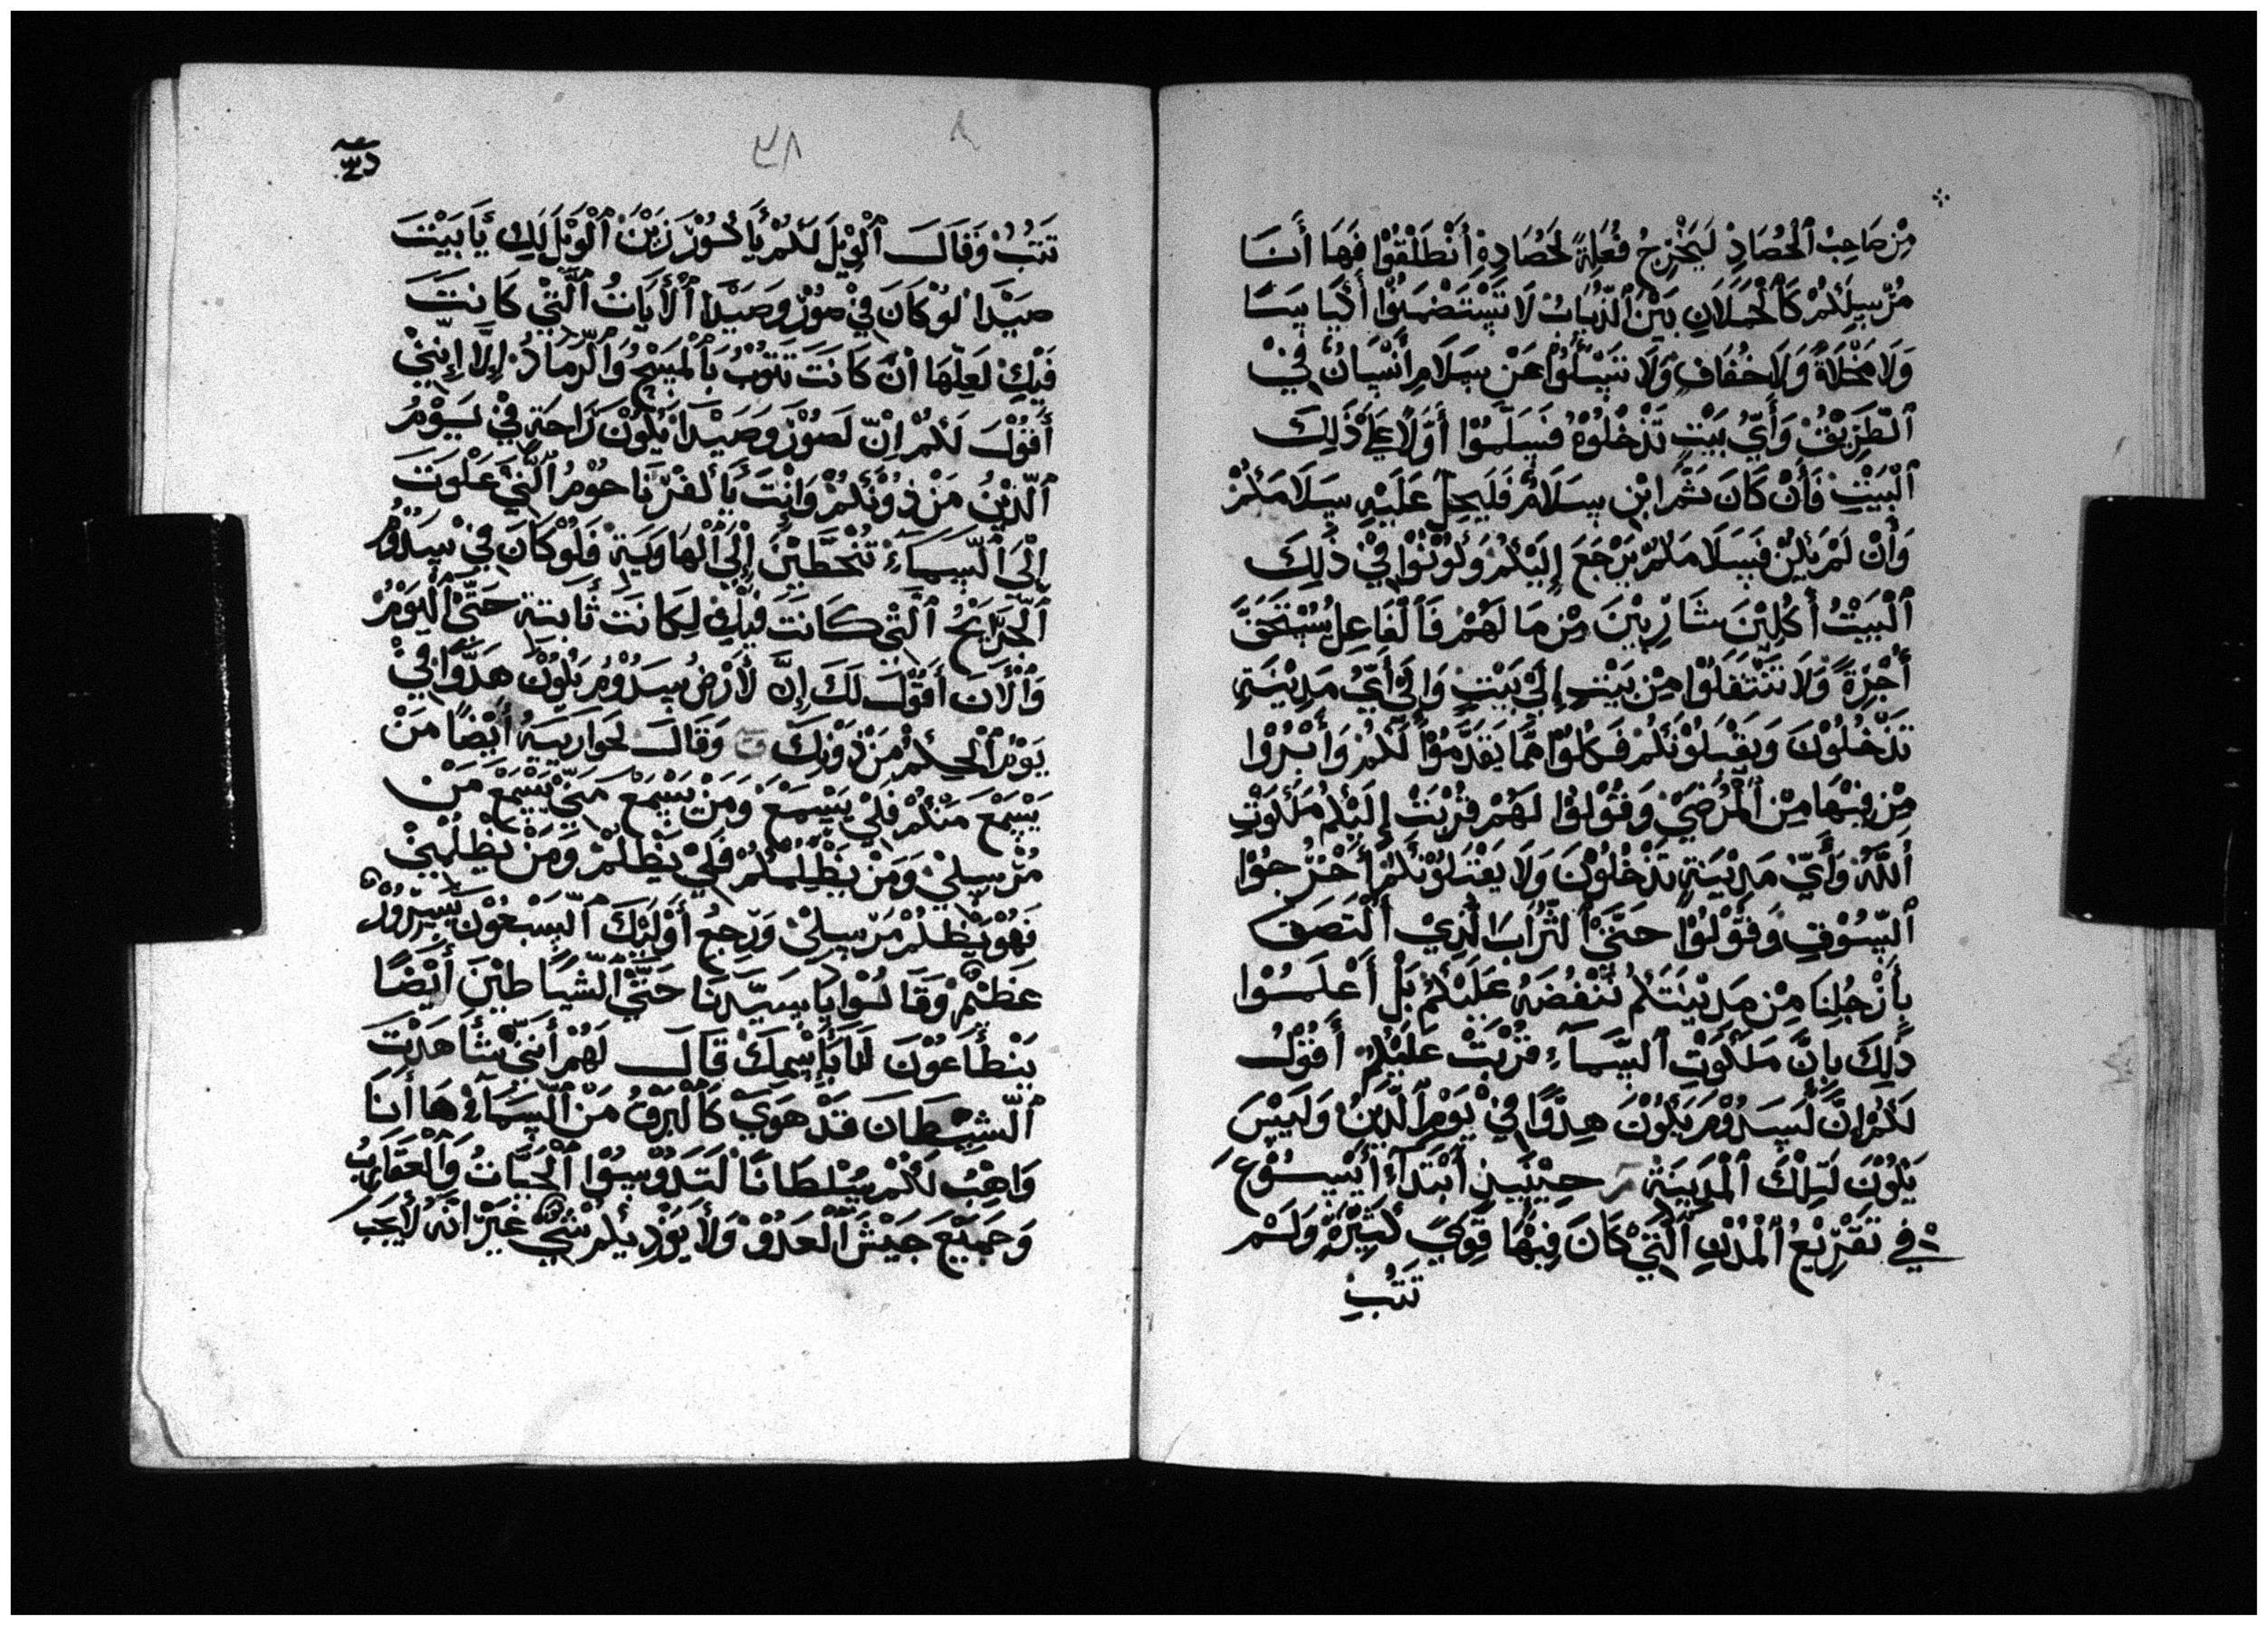 مِنْ صَاحِبْ ٱلْحُصَادِ لَيُخْرِجُ فُعَلِةً لَحُصَادِهِ أَنْطَلْقُوْا فَهَا أَنَا
مُرْسِلَكُمْ كَٱلْحَمَلَانِ بَيْنَ ٱلذِّيَابْ لَا تَسْتَصْحِبُوْا أَكْيَاسًا
وَلَا مَخْلَاةً وَلَا خُفَافٍ وَلَا تَسْئَلُوْا عَنْ سَلَامِ أَنْسَانُ فِيْ
ٱلطَّرِيْقْ وَأَيُّ بَيْتٍ تَدْخُلُوْهُ فَسَلِّمُوْا أَوَّلًا عَلَىْ ذَلِكَ
ٱلْبَيْتِ فَأَنْ كَانَ ثَمَّ ابْن سَلَامٌ فَلَيحِلّ عَلَيْهِ سَلَامَكُمْ
وَأَنْ لَمْ يَكُنْ فَسَلَامَكُمْ يَرْجَعَ إِلَيْكُمْ وَكُوْنُوْا فِيْ ذَلِكَ
ٱلْبَيْتْ أَكِلِيْنَ شَارِبِيْنَ مِنْ مَا لَهُمْ فَٱلْفَاعِلْ يُسْتَحَقَّ
أُجْرَةً وَلَا تَنْتَقَلُوْا مِنْ بَيْتٍ إِلَىْ بَيْتٍ وَإِلَىْ أَيّ مَدِيْنَةٍ
تَدْخُلُوْنَ وَيَقْبَلُوْنَكُمْ فَكُلُوْا مِمَّا يَقَدَّمُوْا لَكُمْ وَأَبْرُوْا
مِنْ فِيْهَا مِنَ ٱلْمُرْضَىْ وَقُوْلُوْا لَهُمْ قَرُبَتْ إِلَيْكُمْ مَلَكُوْتِ
ٱللَّهْ وَأَيّ مَدِيْنَةٍ تَدْخُلُوْنَ وَلَا يَقْبَلُوْنَكُمْ أَخْرُجُوْا
ٱلسُّوْقِ وَقُوْلُوْا حَتَّىْ ٱلتُّرَابَ ٱلَّذِيْ ٱلْتَصَقَ
بِأَرْجُلِنَا مِنْ مَدِيْنَتَكُمْ نُنْفُضَهُ عَلَيْكُمْ بَلْ أَعْلَمُوْا
ذَلِكَ بِانَّ مَلَكُوْتِ ٱلسَّمَآءِ قَرُبَتْ عَلَيْكُمْ أَقُوْلُ
لَكُمْ إِنَّ لَسَدُوْمَ يَكُوْنَ هِدُوًّا فِيْ يَوْمِ ٱلدِّيْنْ وَلَيْسَ
يَكُوْنَ لَتِلْكَ ٱلْمَدِيْنَةْ حِيْنَيِذٍ أَبْتَدَأَ أَيْسُوْعَ
فِي تَقْرِيْعُ ٱلْمُدُنِ ٱلَّتِيْ كَانَ فِيْهَا قُوَى كَثِيْرَةْ وَلَمْ
تَتُبْ
٣٨
تَتُبْ وَقَالَ ٱلْوَيْلَ لَكُمْ يَا كُوْرَزَيْنَ ٱلْوَيْلَ لَكِ يَا بَيْتَ
صَيْدَا لَوْ كَانَ فِيْ صُوْرْ وَصَيْدَا ٱلْأَيَاتُ ٱلَّتِيْ كَانَتَ
فَيْكِ لَعَلّهَا أنَّ كَانَتَ تَتُوْبُ بَٱلْمَسْحِ وَٱلرَّمَادْ إِلَّا إِنَّنِيْ
أَقُوْلَ لَكُمْ إِنّ لَصُوْرَ وَصَيْدَا يَكُوْنَ رَاحَةٍ فِيْ يَوْمْ
ٱلدِّيْنُ مَنْ دُوْنَكُمْ وَانْتَ يَا كَفَرْنَاحُوْمُ ٱلَّتِيْ عَلَوْتَ
إِلَىَ ٱلسَّمَآءْ تُنْحَطِّيْنَ إِلَىْ ٱلْهَاوَيَةِ فَلَوْ كَانَ فِيْ سَدُوْمْ
ٱلْجَرَايِحُ ٱلَّتِيْ كَانَتَ فِيْكِ لَكَانَتَ ثَابَتةٍ حَتَّىْ ٱلْيَوْمْ
وَٱلْأَنَ أَقُوْلَ لَكَ إِنَّ لَأَرْضُ سَدُوْمْ يَكُوْنَ هَدُوًّا فِيْ
يَوْمِ ٱلْحِكْمُ مَنْ دُوْنِكَ وَقَالَ لَحَوَارِيِيَهُ أَيْضًا مَنْ
يَسْمَعَ مَنْكُمْ فَلِيْ يَسْمَعْ وَمَنْ يَسْمَعْ مَنِّيْ يَسْمَعْ مَنْ
مُرْسِلِيْ وَمَنْ يَظْلِمُكُمْ فَلِيْ يَظْلُمْ وَمَنْ يَظْلُمْنِيْ
فَهُوَ يَظْلُمْ مُرْسِلِيْ وَرَجِعُ أَوْلَئِكَ ٱلسَّبْعُوْنَ بَسَرُوْرٍ
عَظِيْمٍ وَقَالُوْا يَا سَيَّدِنَا حَتَّىْ ٱلشَّيَاطِيْنَ أَيْضًا
يَنْطَاَعُوْنَ لَنَا بَإِسْمِكَ قَالَ لَهُمْ أَنَنِيْ شَاهَدْتَ
ٱلشَّيْطَانَ قَدْ هَوَىَ كَٱلْبَرْقُ مَنْ ٱلسَّمَآءْ هَا أَنَا
وَاهِبُ لَكُمْ سُلْطَانًا لَتَدُوْسُوْا ٱلْحَيَّاتُ وَٱلْعَقَارِبُ
وَجَمَيْعَ جَيْشَ ٱلْعَدُوْ وَلَأ يَؤَذِيكُمْ شَيْ غَيْرَ انَّهُ لَأ يَجَب